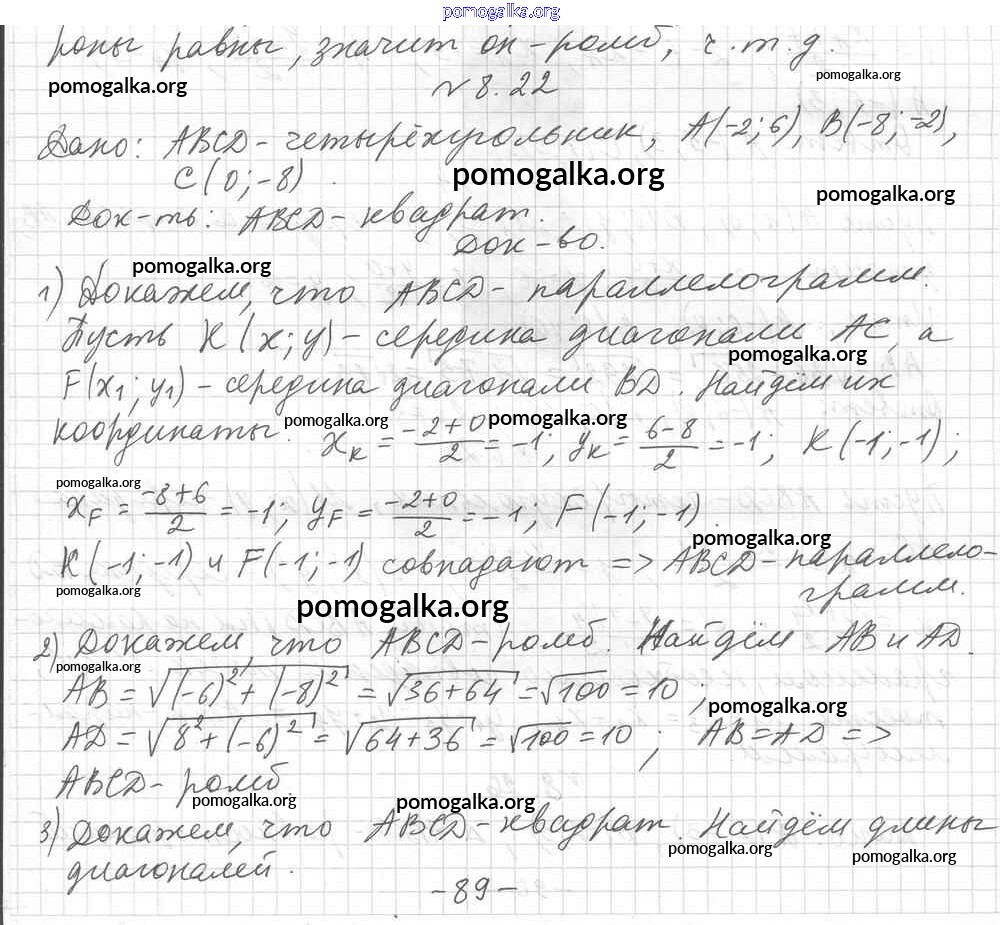 pomogalka.org
роны равны, значит он - ромб, ч.т.д.
pomogalka.org pomogalka.org
№ 8.22
Дано: ABCD - четырёхугольник, A(-2; 6), B(-8; -2),
C(0; -8)
pomogalka.org pomogalka.org
Док-ть: ABCD - квадрат.
Док-во.
pomogalka.org
1) Докажем, что ABCD - параллелограмм.
Пусть K(x; y) - середина диагонали AC, а
pomogalka.org
F(x₁; y₁) - середина диагонали BD. Найдём их
pomogalka.org pomogalka.org
координаты. x_K = (-2+0)/2 = -1; y_K = (6-8)/2 = -1; K(-1; -1);
pomogalka.org
x_F = (-8+6)/2 = -1; y_F = (-2+0)/2 = -1; F(-1; -1)
pomogalka.org
K(-1; -1) и F(-1; -1) совпадают => ABCD - параллело-
грамм.
pomogalka.org pomogalka.org
2) Докажем, что ABCD - ромб. Найдём AB и AD.
pomogalka.org
AB = √((-6)² + (-8)²) = √(36+64) = √100 = 10;
pomogalka.org
AD = √(8² + (-6)²) = √(64+36) = √100 = 10; AB = AD =>
ABCD - ромб.
pomogalka.org pomogalka.org
3) Докажем, что ABCD - квадрат. Найдём длины
pomogalka.org pomogalka.org
диагоналей.
- 89 -